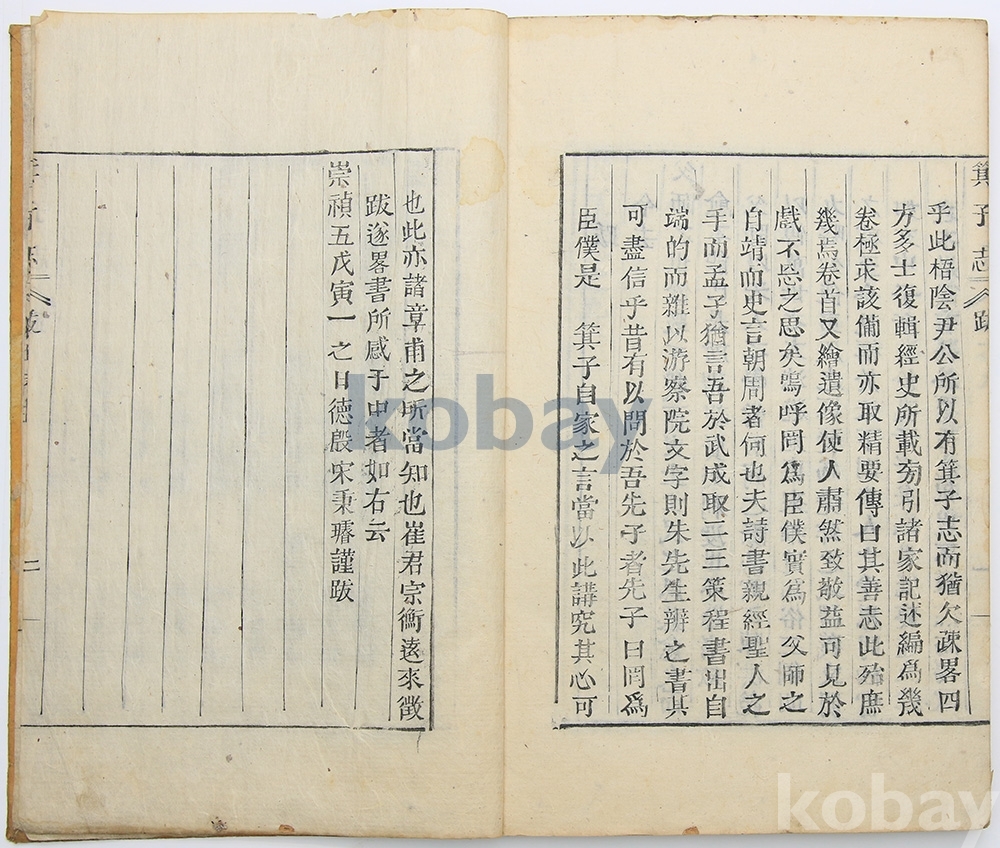 箕子志 跋 一
乎此梧陰尹公所以有箕子志而猶欠疎畧四
方多士復輯經史所載旁引諸家記述編爲幾
卷極求該備而亦取精要傳曰其善志此殆庶
幾焉卷首又繪遺像使人肅然致敬益可見於
戲不忘之思矣嗚呼罔爲臣僕實爲 父師之
自靖而史言朝周者何也夫詩書親經聖人之
手而孟子猶言吾於武成取二三策程書出自
端的而雜以游察院文字則朱先生辨之書其
可盡信乎昔有以問於吾先子者先子曰罔爲
臣僕是 箕子自家之言當以此講究其心可
也此亦諸章甫之所當知也崔君宗衡遠來徵
跋遂畧書所感于中者如右云
崇禎五戊寅一之日德殷宋秉璿謹跋
二
kobay
kobay